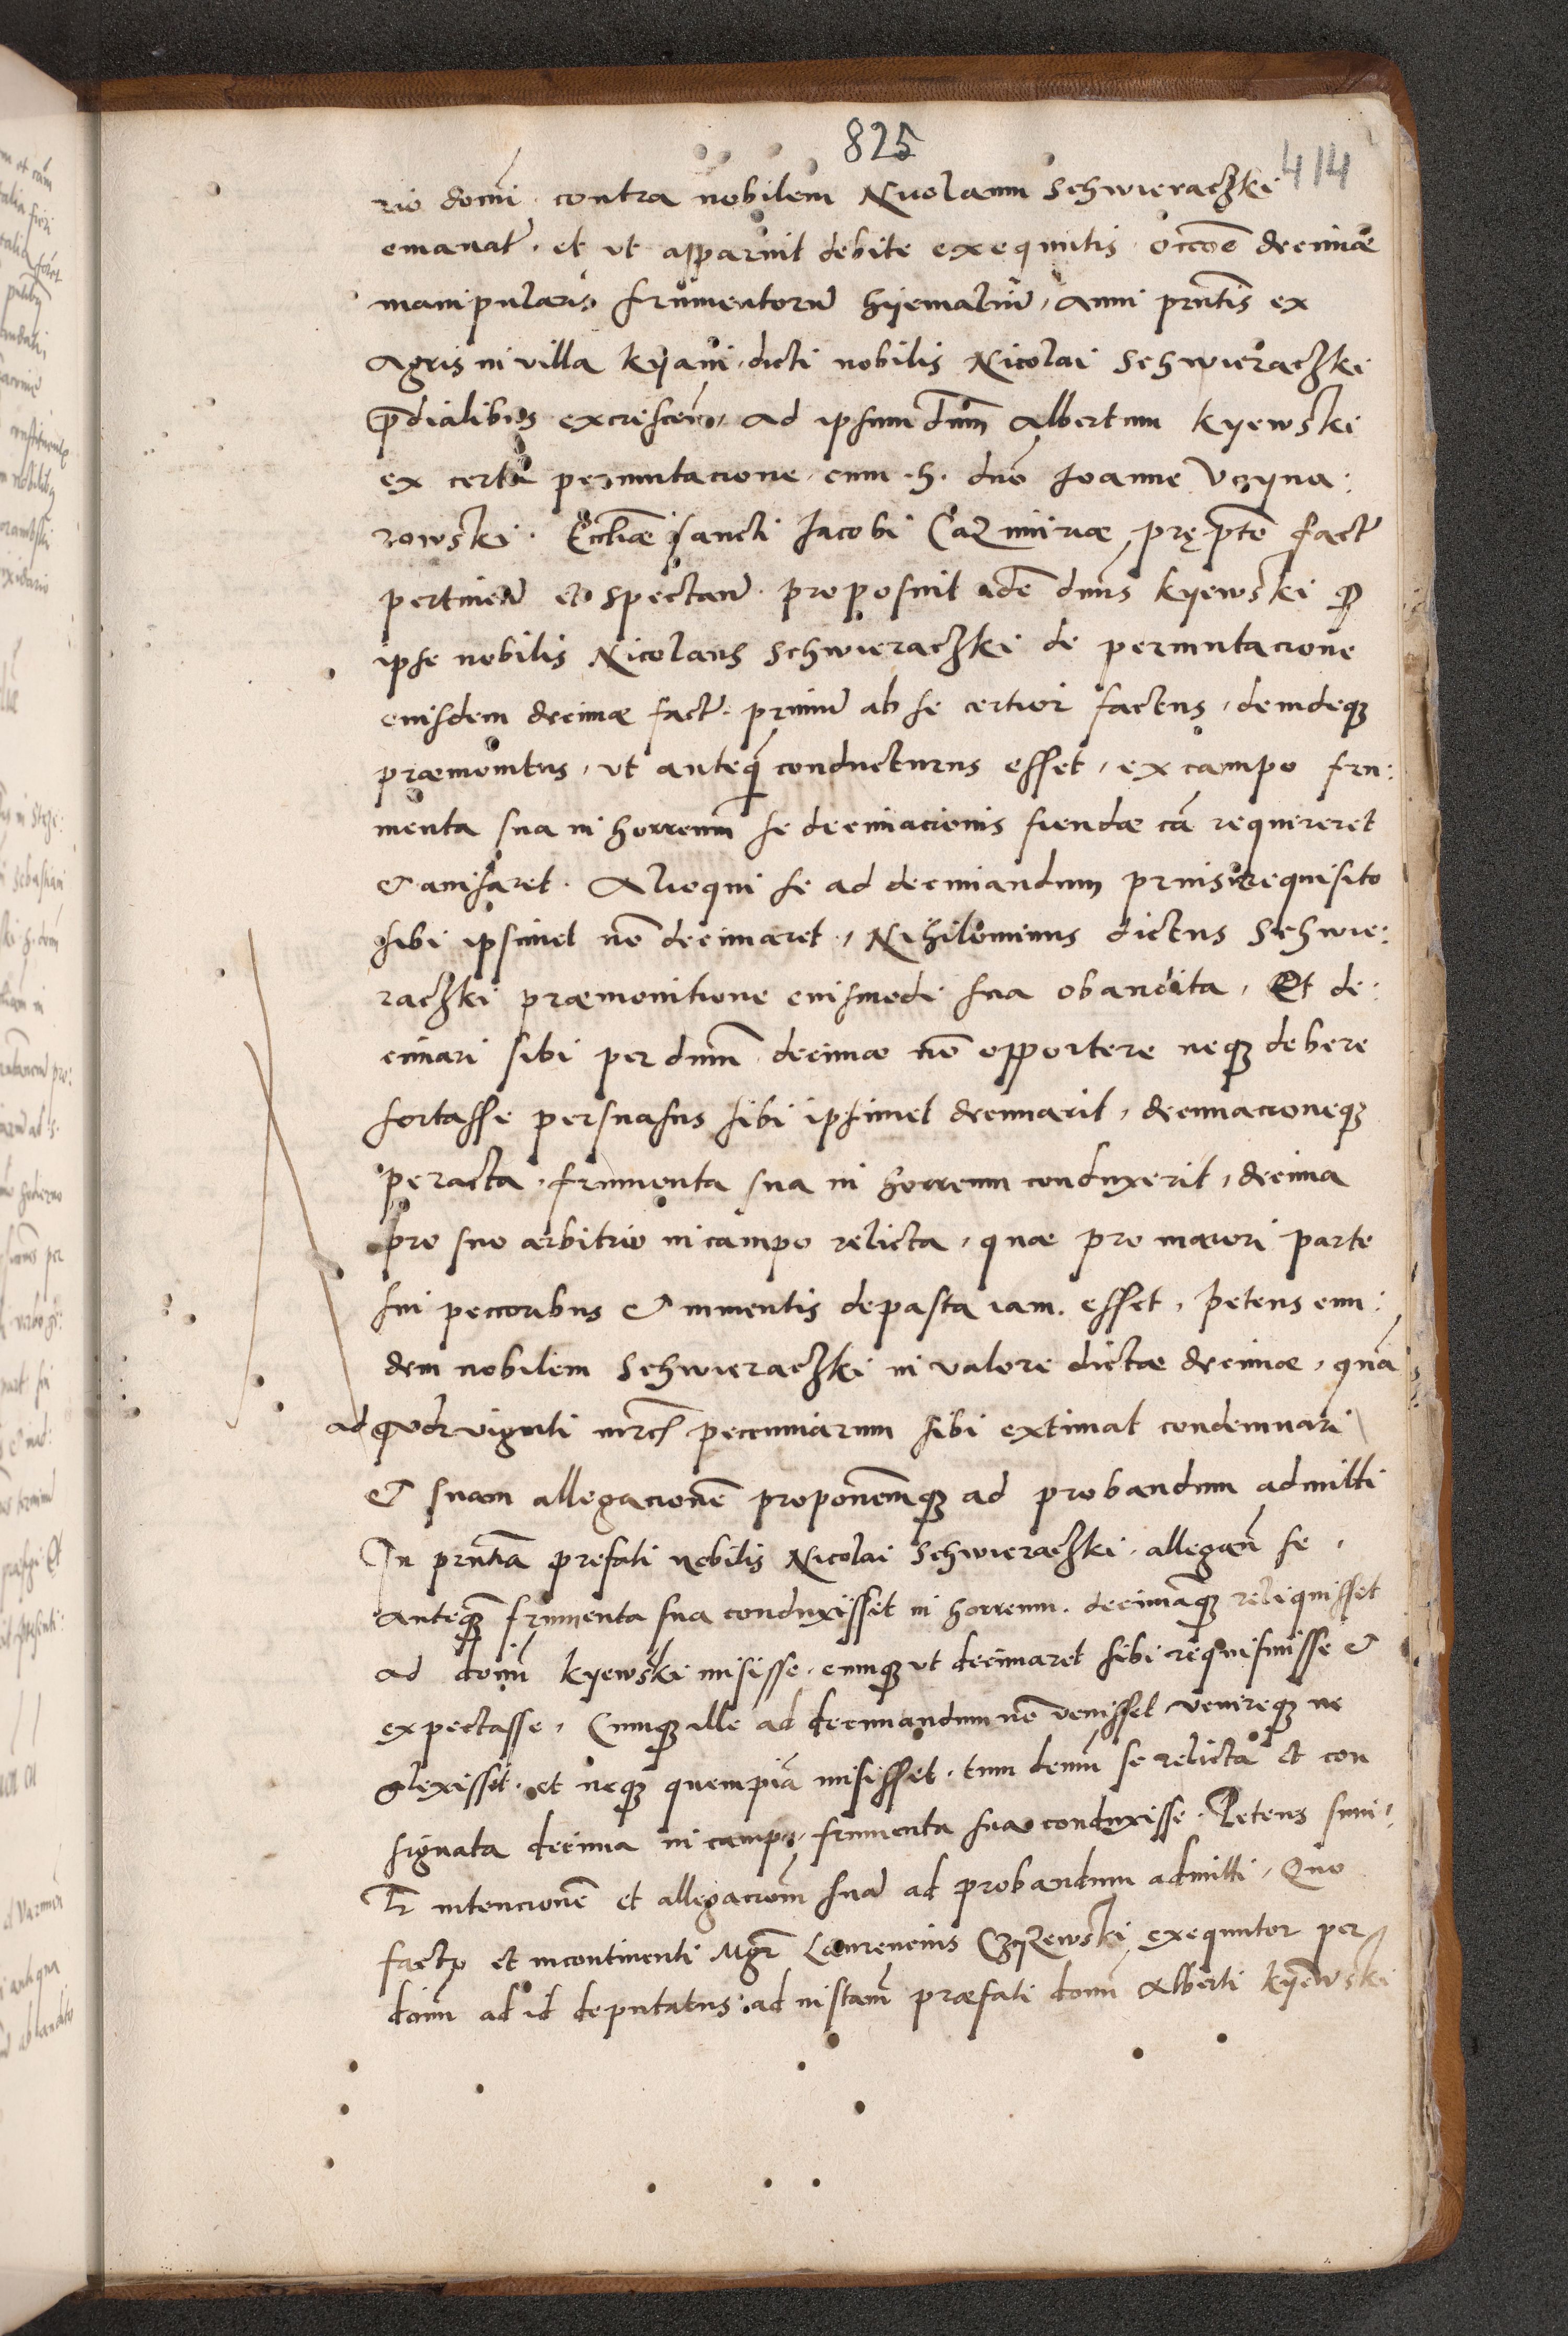 825
414
rio domi contra nobilem Nicolaum Schwieraczki
emanat. et ut apparuit debite exequutis occoe decimæ
manipularis frumentorum hyemalium, Anni prntis ex
Agris in villa Kyani, dicti nobilis Nicolai Schwieraczki
prædialibus excrescen. ad ipsum dnm Albertum Kyewski
ex certa permutacione, cum .h. dno Ioanne Uczyna:
rowski. Eccliæ sancti Iacobi Cazimiriæ præpto fact
pertinen et spectan. proposuit idem dnus Kyewski q
ipse nobilis Nicolaus Schwieraczki de permutacione
eiusdem decimæ fact. primum ab se certior factus, deindeq
præmonitus, ut anteq conducturus esset, ex campo fru:
menta sua in horreum se decimacionis fiendæ cã requireret
& avisaret. Alioqui se ad decimandum prius requisito
sibi ipsimet no decimaret, Nihilominus dictus Schwie:
raczki præmonitione euismodi sua obaudita, Et de:
cimari sibi per dnum decimæ no opportere neq debere
fortasse persuasus sibi ipsimet decimarit, decimacioneq
peracta, frumenta sua in horreum conduxerit, decima
pro suo arbitrio in campo relicta, quæ pro maiori parte
sui peccoribus & iumentis depasta iam. esset, petens eun:
dem nobilem Schwieraczki in valore dictæ decimæ, quã
ad qdrviginti mrcs peccuniarum sibi extimat condemnari
& suam allegacionem proponemq ad probandum admitti
In prntia prefati nobilis Nicolai Schwieraczki, allegan se,
anteq frumenta sua conduxisset in horreum. decimaq reliquisset
ad domi Kyewski misisse, eumq ut decimaret sibi requisiuisse &
expectasse, Cumq ille ad decimandum no venisset venireq ne
glexisset. et neq quempiã misisset. tum demum se relicta et con
signata decima in campo, frumenta sua conduxisse. Petens simi,
lr intencionem et allegaciom suã ad probandum admitti, Quo
facto et incontinenti Mgr Laurencius Czyzewski exequutor per
domi ad id deputatus, ad instam præfati domi Alberti Kyewski